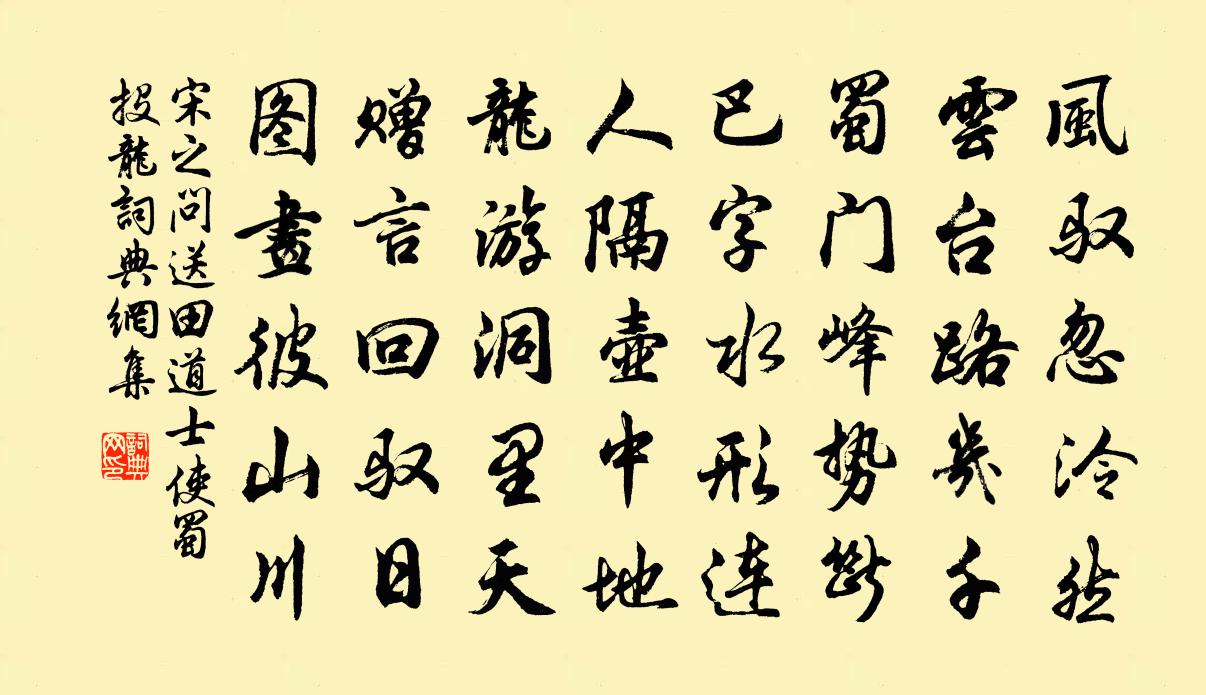 風驭忽泠然
雲台路幾千
蜀门峰势斷
巴字水形連
人隔壺中地
龍游洞里天
赠言回驭日
图畫彼山川
宋之问送田道士使蜀
投龍詞典網集
詞典
网印